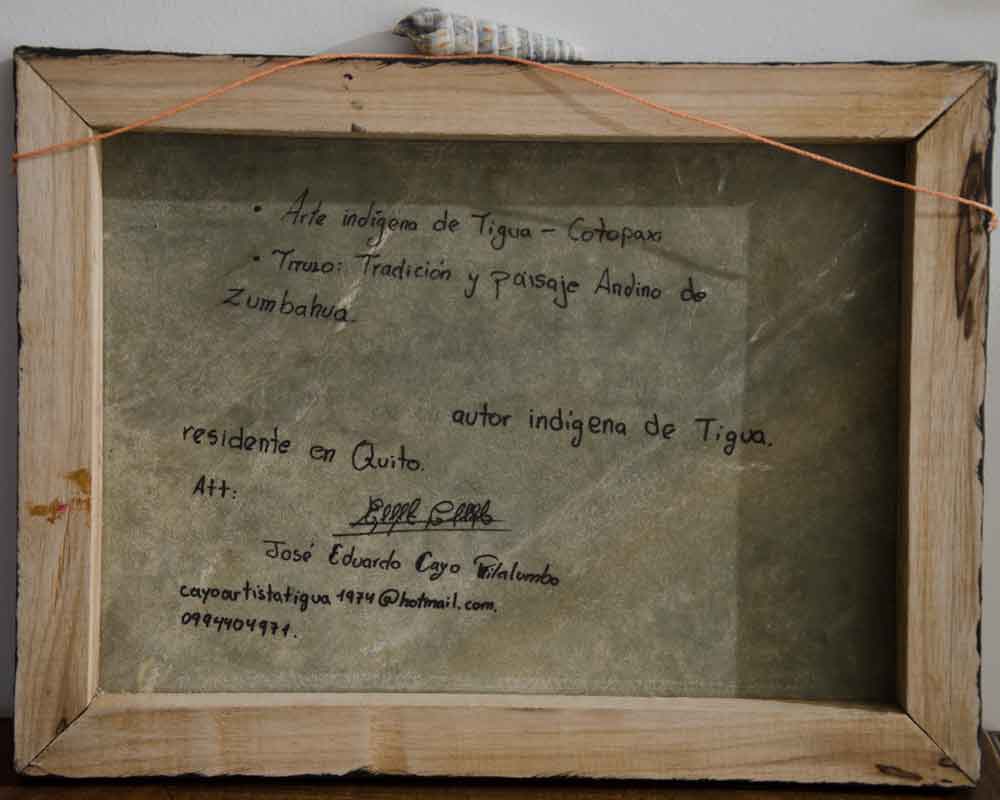 • Arte indígena de Tigua - Cotopaxi
• TITULO: Tradición y paisaje Andino de
Zumbahua.
autor indígena de Tigua.
residente en Quito.
Att:
José Eduardo Cayo Pilalumbo
cayoartistatigua1974@hotmail.com.
0994404971.